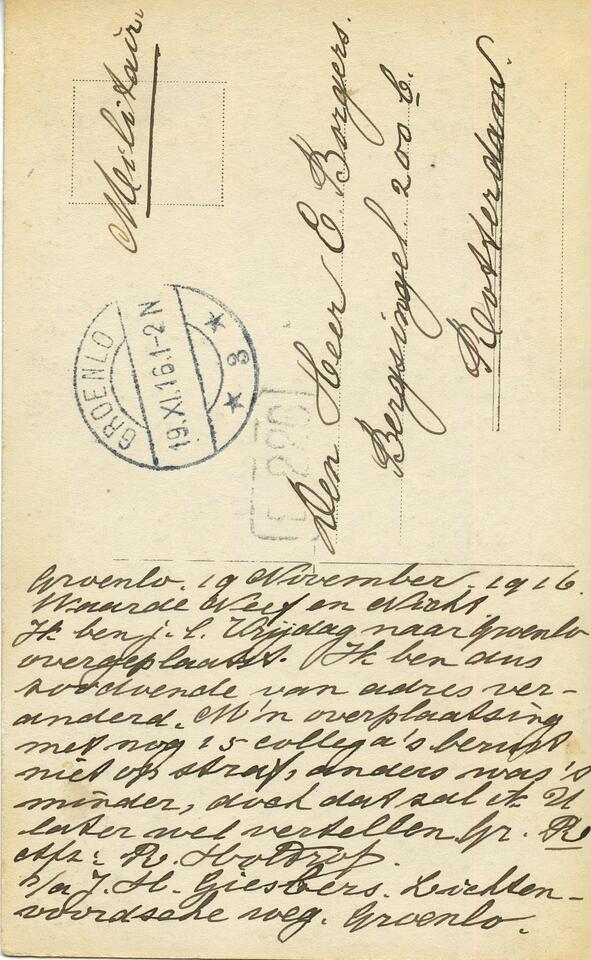 Militair
GROENLO
19.XI.16.1-2N
★ 3 ★
E 220
Den Heer E Borgers.
Bergsingel 200 b.
Rotterdam.
Groenlo. 19 November. 1916.
Waarde Neef en Nicht.
Ik ben j.l. Vrijdag naar Groenlo
overgeplaatst. Ik ben dus
zoodoende van adres ver-
anderd. M'n overplaatsing
met nog 15 collega's berust
niet op straf, anders was 's
minder, doch dat zal ik U
later wel vertellen. Gr. R
Afz: R. Holtrop.
p/a J. H. Giesbers. Lichten-
voordsche weg. Groenlo.